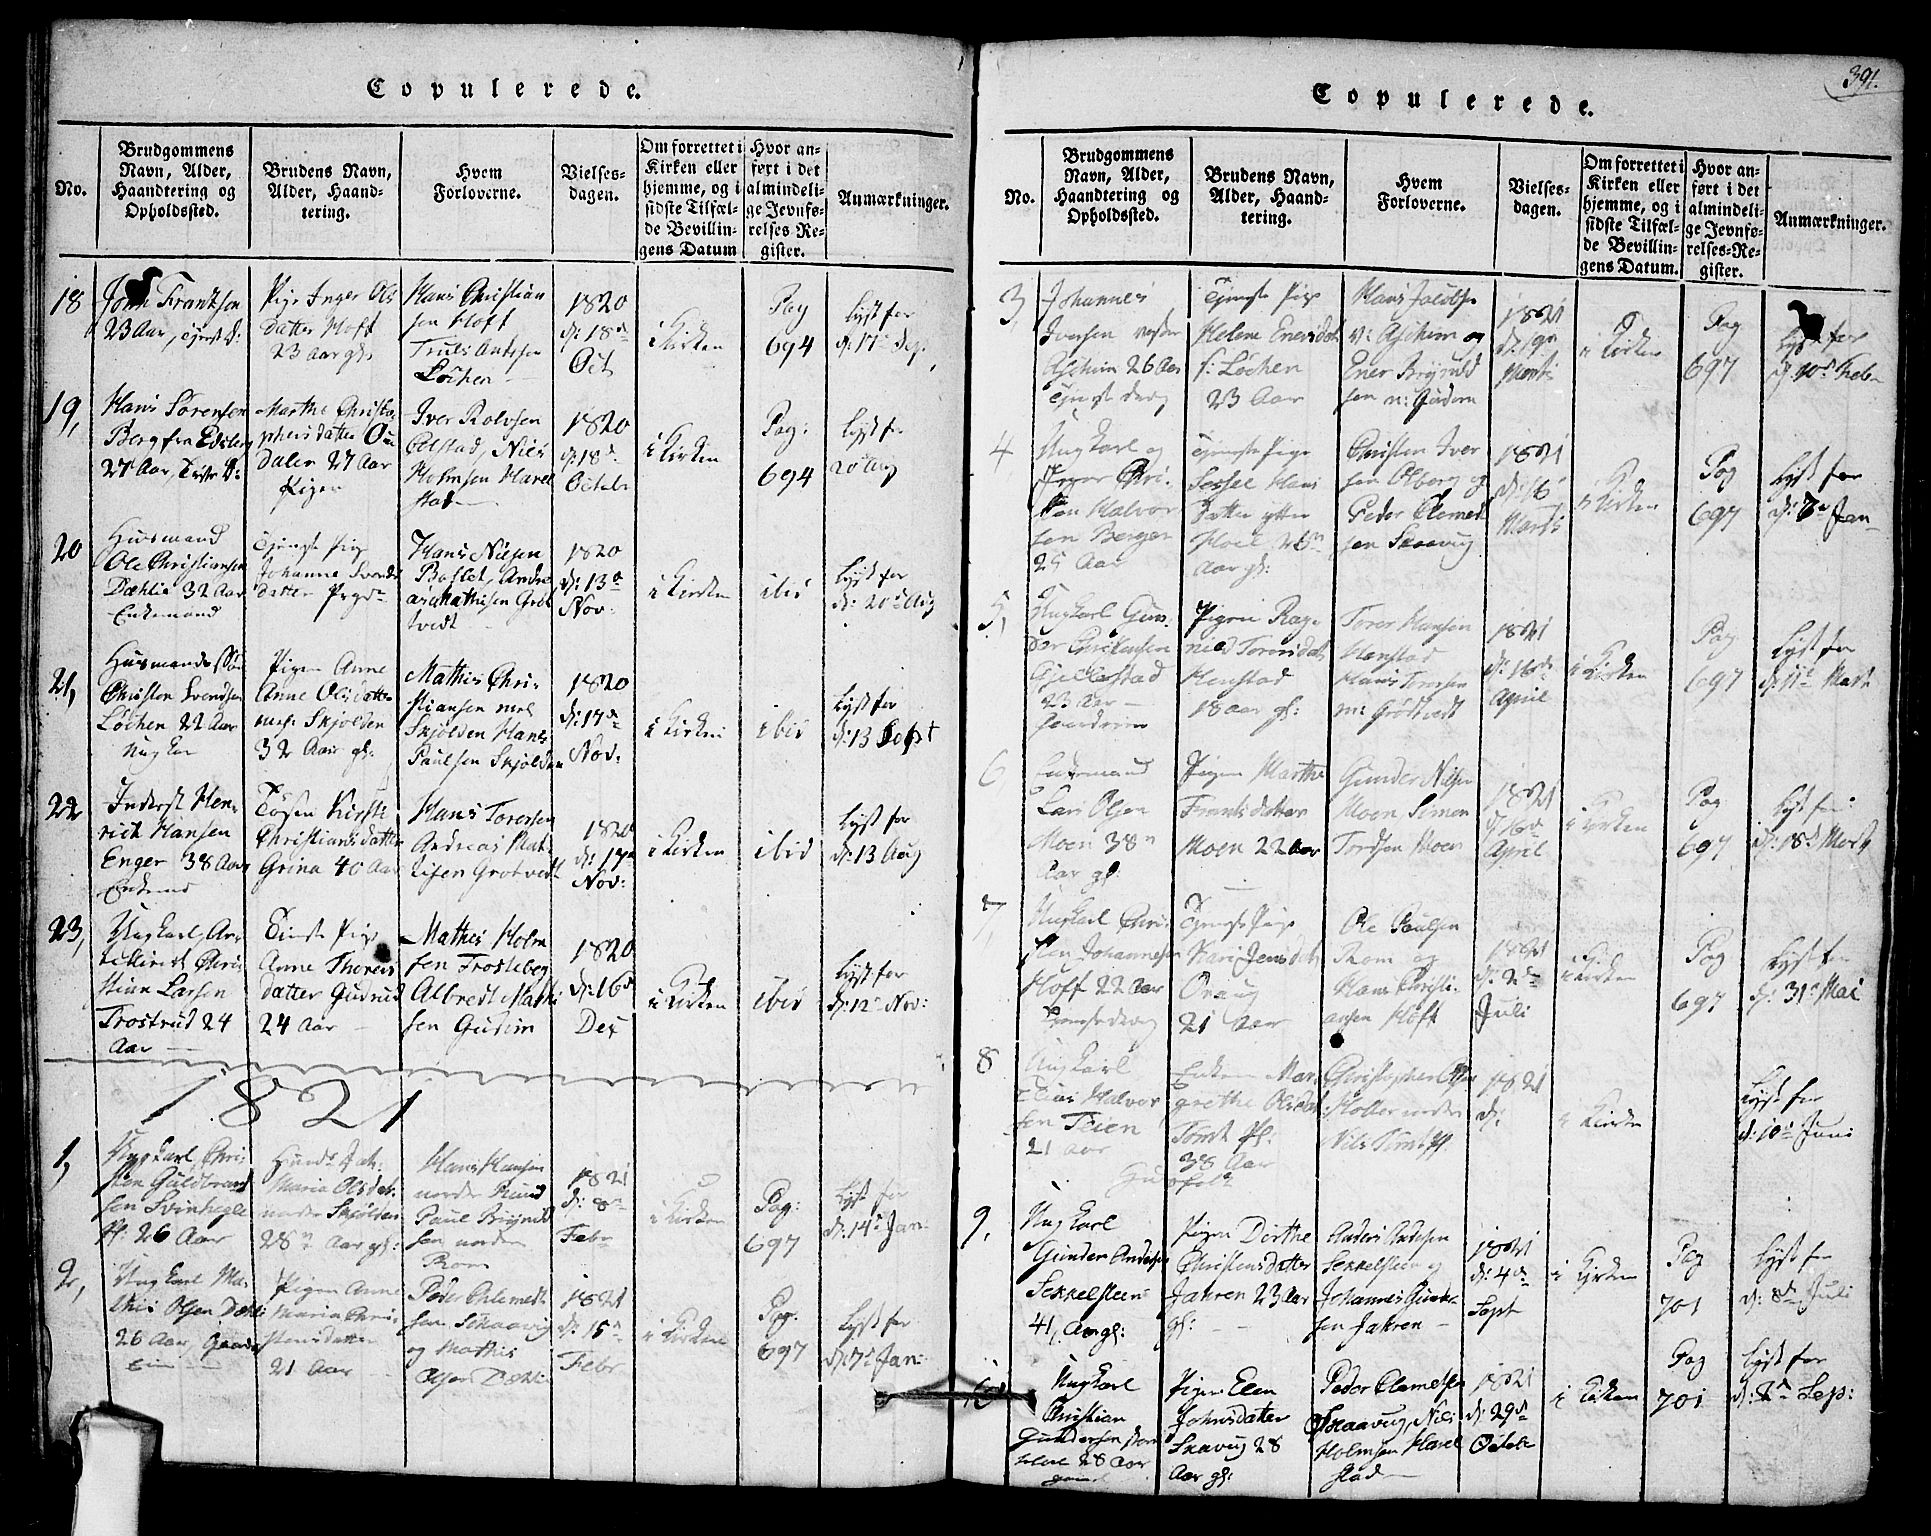 Copulerede.
No.
Brudgommens
Navn, Alder,
Haandtering og
Opholdssted.
Brudens Navn,
Alder, Haand-
tering.
Hvem
Forloverne.
Vielses-
dagen.
Om forrettet i
Kirken eller
hjemme, og i
sidste Tilfæl-
de Bevillin-
gens Datum
Hvor an-
ført i det
almindeli-
ge Jevnfø-
relses-Re-
gister.
Anmærkninger.
18
John Frantsen
23 Aar,
Pige Inger Ols
datter Hoff
23 Aar gl:
Hans Christian
sen Hoff
Truls Antssen
Løchen
1820
d: 18de
Oct
i Kirken
Pag
694
lyst for
d: 17de Sept
19,
Hans Sørensen
Berg fra Edsberg
27 Aar,
Marthe Christo
phersdatter
Dalen 27 Aar
Pigen
Iver Rolvsen
Olstad, Niels
Holmsen Harel
stad
1820
d: 18de
Octobr
i Kirken
Pag:
694
lyst for
20 Aug
20
Husmand
Ole Christiansen
Dæhlie 32 Aar
Enkemand
Tjeneste Pige
Johanne Svends
datter
Hans Nilsen
Andre
as Mathisen Grøt
tvedt
1820
d: 13de
Nov:
i Kirken
ibid
lyst for
d: 20de Aug
21,
Husmands
Christen Svendsen
Løchen 22 Aar
Ungkar
Pigen Anne
Anne Olsdatter
Skjolden
32 Aar gl:
Mathis Chri-
stiansen
Skjolden Hans
Paulsen Skjolden
1820
d: 17de
Nov:
i Kirken
ibid
lyst for
d: 13 Sept
22
Inderst Hen-
rich Hansen
Enger 38 Aar
Enkemd
Tøsen Kirsti
Christiansdatter
Grina 40 Aar
Hans Torersen
Andreas Mat-
tisen Grotvedt
1820
d: 17de
Nov:
i Kirken
ibid
lyst for
d: 13 Aug
23,
Ungkarl, Ar-
tillerist Chris
tian Larsen
Trostrud 24
Aar
Pige
Anne Thorers
datter Gudim
24 Aar
Mathis Holm
sen Trosteberg
Albredt Mathi
sen Gudim
1820
d: 16de
Dec
i Kirken
ibid
lyst for
d: 12te Nov:
1821
1,
Ungkarl Chri-
sten Guldbrand
sen Svinhegle
Pl: 26 Aar
Maria Olsdat:
nordre Skjolden
28de Aar gl:
Hans Hansen
nordre Ruud
Paul Brynild
sen nordre
Rom
1821
d: 8de
Febr
i Kirken
Pag:
697
lyst for
d: 14de Jan:
2,
Ungkarl Ma-
this Olsen Dæhli
26 Aar, Gaard
Pigen Anne
Maria Chri-
stensdatter
21 Aar
Peder Clemet
sen Skaavig
og Mathis
Olsen Dæhli
1821
d: 15de
Febr
i Kirken
Pag:
697
lyst for
d: 7de Jan:
391.
Copulerede.
No.
Brudgommens
Navn, Alder,
Haandtering og
Opholdssted.
Brudens Navn,
Alder, Haand-
tering.
Hvem
Forloverne.
Vielses-
dagen.
Om forrettet i
Kirken eller
hjemme, og i
sidste Tilfæl-
de Bevillin-
gens Datum.
Hvor an-
ført i det
almindeli-
ge Jevnfø-
relses-Re-
gister.
Anmærkninger.
3,
Johannes
Iversen vestre
Aschim 26 Aar
Tjeneste Pige
Helene Enersdat
s: Løchen
23 Aar
Hans Jacobse
v: Aschim og
Ener Brynild
sen n: Gudem
1821
Marti
i Kirken
Pag
697
Lyst for
d: 10de Feb
4
Ungkarl og
Halvor
sen Berger
25 Aar
Tjeneste Pige
Sessel Hans
Datter ytter
Hoel
Aar gl:
Christen Iver
sen Olberg og
Peder Clemet
sen Skaavig
1821
d: 16
Marti
i Kirken
Pag
697
Lyst for
d: 7de Jan
5,
Ungkarl Gun-
der Christensen
Gjellestad
23 Aar
Pigen Rag-
nild Torersdat
Henstad
18 aar gl:
Torer Hansen
Henstad
Hans Torersen
m: Grøtvedt
1821
d: 16de
April
i Kirken
Pag
697
Lyst for
d: 11te Mart
6,
Enkemand
Lars Olsen
Moen 38de
Aar gl.
Pigen Marthe
Frantsdatter
Moen 22 aar
Gunder Nilsen
Moen Simen
Tordsen Moen
1821
d: 16de
April
i Kirken
Pag
697
Lyst for
d: 18de Mart
7,
Ungkarl Chri-
sten Johannesen
Hoff 22 aar
Tjeneste Pige
Kari Jensdat
Oraug
21 Aar
Ole Paulsen
Rom og
Hans Christi-
ansen Hoff
1821
d: 2de
Juli
i Kirken
Pag
697
Lyst for
d: 31te Mai
8
Ungkarl
Halvor
sen Teien
21 aar
Enken Mar-
grethe Olsdat
Tomt Pl:
38 Aar
Christopher
Holter nordre
Nils Tomt Pl.
1821
d:
i Kirken
Lyst for
d: 10de Juni
9,
Ungkarl
Gunder Andersen
Sekkelsteen
41, Aar gl:
Pigen Dorthe
Christensdatter
Jahren 23 aar
gl:
Anders Andersen
Sekkelsteen og
Johannes Gunder
sen Jahren
1821
d: 4de
Sept
i Kirken
Pag
701
Lyst for
d: 8de Juli
10
Ungkarl
Christian
Gundersen
28 Aar
Pigen Elen
Johnsdatter
Skavug 28
Aar gl:
Peder Clemetsen
Skaavug, Nils
Holmsen Harel
stad
1821
d: 29de
Octobr
i Kirken
Pag
701
Lyst for
d: 2de Sep: